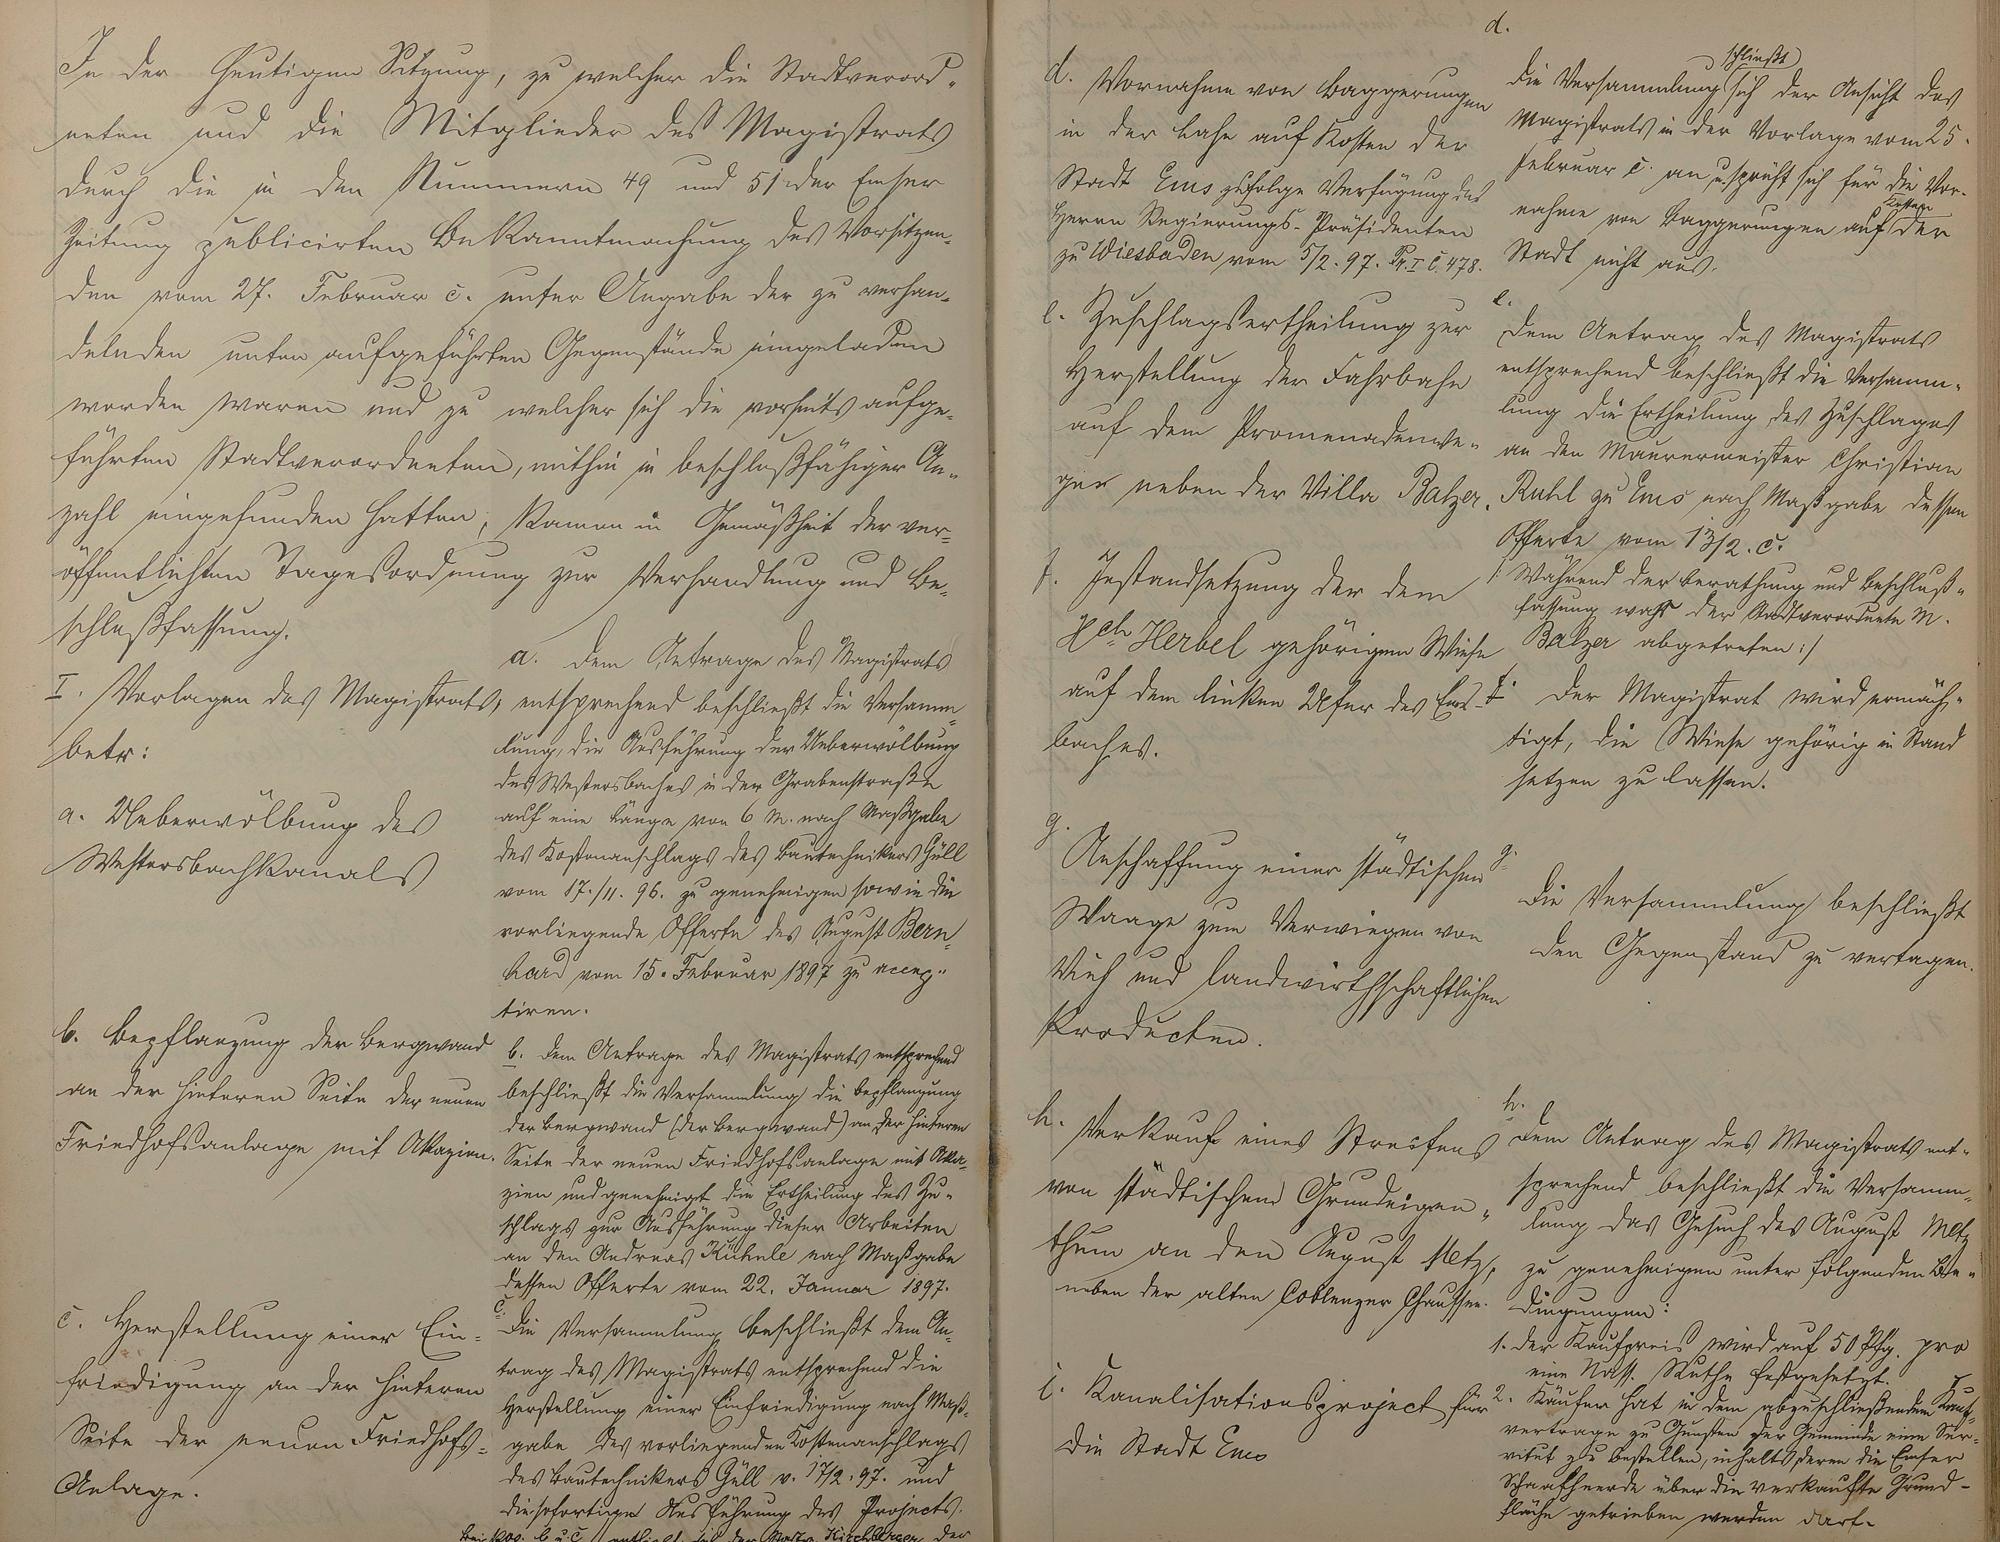 In der heutigen Sitzung, zu welcher die Stadtverord-
neten und die Mitglieder des Magistrats
durch die in den Nummern 49 und 51 der Emser
Zeitung publicirten Bekanntmachung des Vorsitzen-
den vom 27. Februar c. unter Angabe der zu verhan-
delnden unten aufgeführten Gegenstände eingeladen
worden waren und zu welcher sich die vorseits aufge-
führten Stadtverordneten, mithin in beschlußfähiger An-
zahl eingefunden hatten, kamen in Gemäßheit der ver-
öffentlichten Tagesordnung zur Verhandlung und Be-
schlußfassung.
I. Vorlagen des Magistrats,
betr:
a. Ueberwölbung des
Westersbachkanals
a. Dem Antrage des Magistrats
entsprechend beschließt die Versamm-
lung, die Ausführung der Ueberwölbung
des Westersbaches in der Grabenstraße
auf eine Länge von 6 M. nach Maßgabe
des Kostenanschlags des Bautechnikers Güll
vom 17./11. 96. zu genehmigen sowie die
vorliegende Offerte des August Bern-
hard vom 15. Februar 1897 zu accep-
tiren.
b. Bepflanzung der Bergwand
an der hinteren Seite der neuen
Friedhofsanlage mit Akazien.
b. Dem Antrage des Magistrats entsprechend
beschließt die Versammlung die Bepflanzung
der Bergwand (der Bergwand) an der hinteren
Seite der neuen Friedhofsanlage mit Aka-
zien und genehmigt die Ertheilung des Zu-
schlags zur Ausführung dieser Arbeiten
an den Andreas Kühnle nach Maßgabe
dessen Offerte vom 22. Januar 1897.
c. Herstellung einer Ein-
friedigung an der hinteren
Seite der neuen Friedhofs-
Anlage.
c.
Die Versammlung beschließt dem An-
trag des Magistrats entsprechend die
Herstellung einer Einfriedigung nach Maß-
gabe des vorliegenden Kostenanschlags
des Bautechnikers Güll v. 17/2. 97. und
die sofortige Ausführung des Projects.
Bei Pos. b u c der Kirchberger der
d. Vornahme von Baggerungen
in der Lahn auf Kosten der
Stadt Ems zufolge Verfügung des
Herrn Regierungs-Präsidenten
zu Wiesbaden vom 5/2. 97. Pr. I C. 478.
d.
schließt
Die Versammlung sich der Ansicht des
Magistrats in der Vorlage vom 25.
Februar c. an u. spricht sich für die Vor-
Kosten
nahme von Baggerungen auf der
Stadt nicht aus.
e. Zuschlagsertheilung zur
Herstellung der Fahrbahn
auf dem Promenadenwe-
ge neben der Villa Balzer.
e.
Dem Antrag des Magistrats
entsprechend beschließt die Versamm-
lung die Ertheilung des Zuschlages
an den Maurermeister Christian
Ruhl zu Ems nach Maßgabe dessen
Offerte vom 13/2. c.
/: Während der Berathung und Beschluß-
fassung war der Stadtverordnete M.
Balzer abgetreten :/
f. Instandsetzung der dem
Hch Herbel gehörigen Wiese
auf dem linken Ufer des Ems-
baches.
f. Der Magistrat wird ermäch-
tigt, die Wiese gehörig in Stand
setzen zu lassen.
g.
Anschaffung einer städtischen
Waage zum Verwiegen von
Vieh und landwirthschaftlichen
Producten.
g.
Die Versammlung beschließt
den Gegenstand zu vertagen.
h. Verkauf eines Streifens
von städtischem Grundeigen-
thum an den August Metz,
neben der alten Coblenzer Chaussee.
h.
Dem Antrag des Magistrats ent-
sprechend beschließt die Versamm-
lung das Gesuch des August Metz
zu genehmigen unter folgenden Be-
dingungen:
1. Der Kaufpreis wird auf 50 Pfg. pro
eine Nass. Ruthe festgesetzt.
2. Käufer hat in dem abzuschließenden Kauf-
vertrage zu Gunsten der Gemeinde eine Ser-
vitut zu bestellen, inhalts deren die Emser
Schaafheerde über die verkaufte Grund-
fläche getrieben werden darf.
i. Kanalisationsproject für
die Stadt Ems